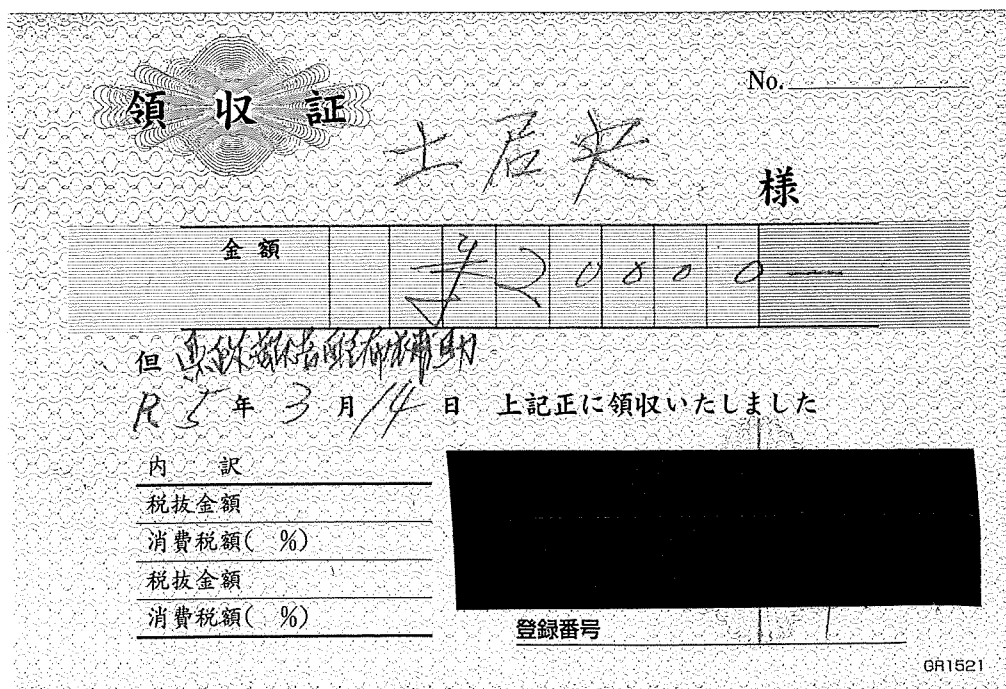 領収証
No.
土居央 様
金額 ¥20000—
但
R5年3月14日 上記正に領収いたしました
内訳
税抜金額
消費税額( %)
税抜金額
消費税額( %)
登録番号
GR1521